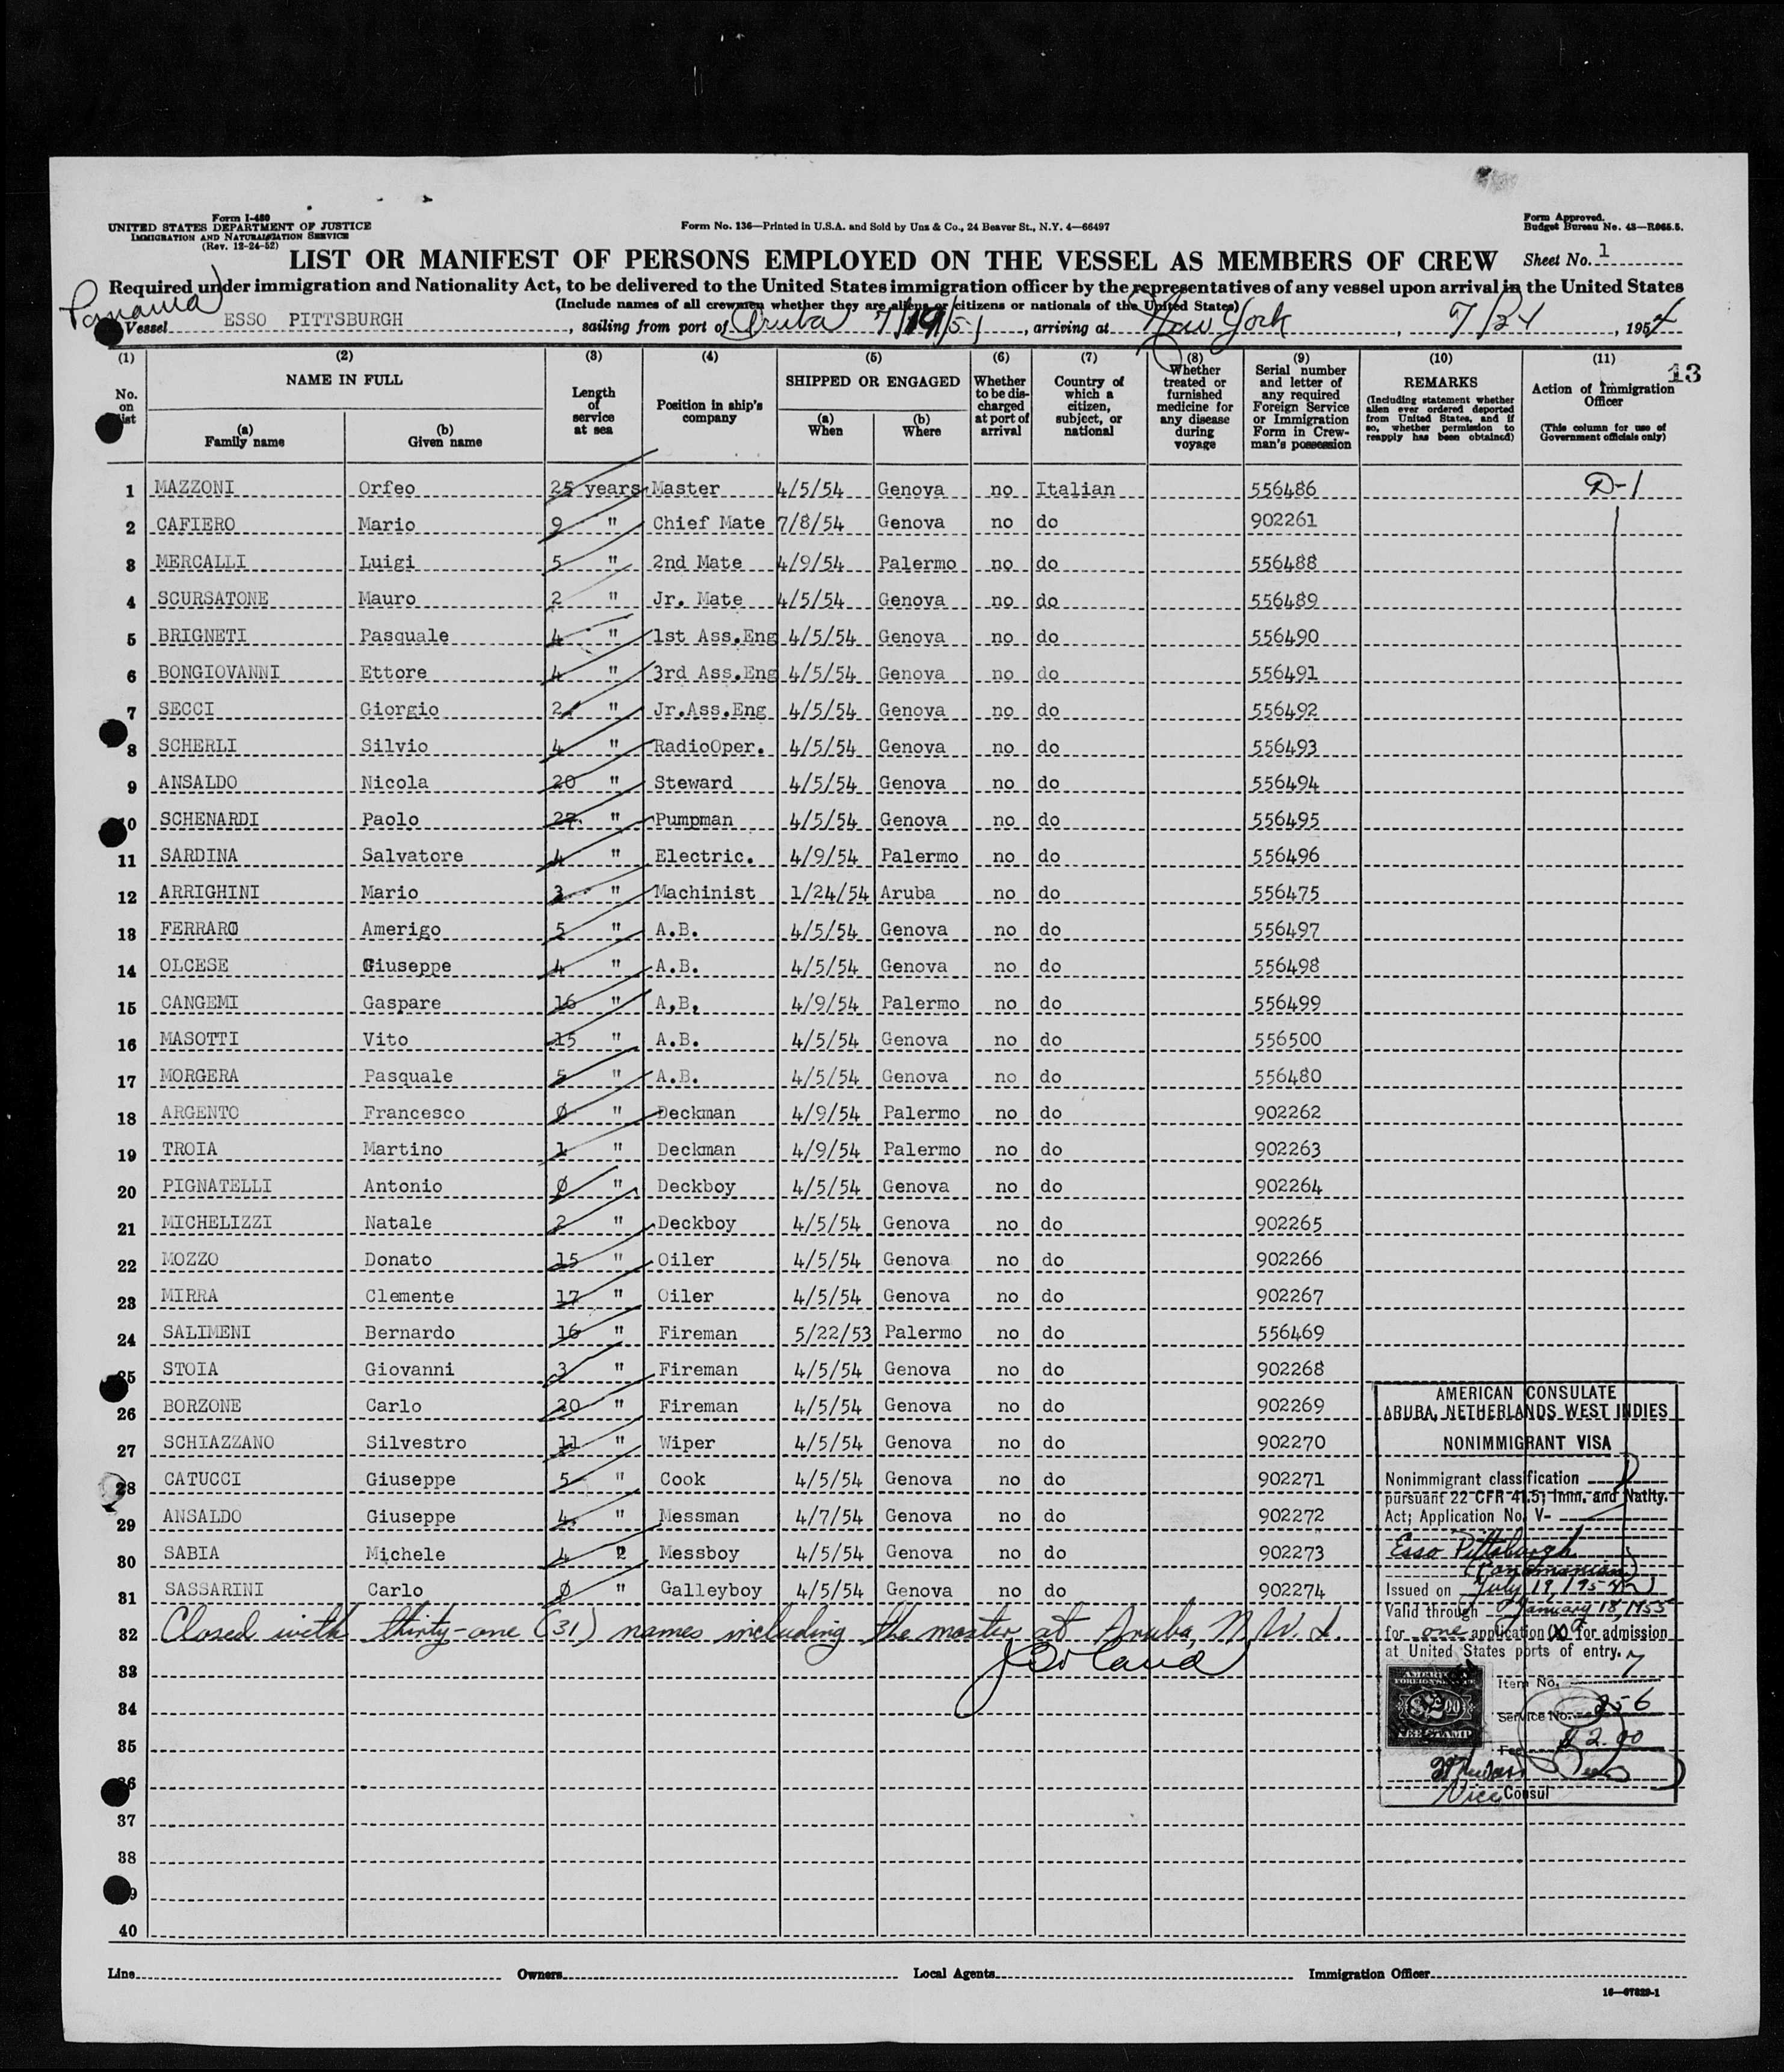 Form I-480
UNITED STATES DEPARTMENT OF JUSTICE
IMMIGRATION AND NATURALIZATION SERVICE
(Rev. 12-24-52)
Form No. 136—Printed in U.S.A. and Sold by Unz & Co., 24 Beaver St., N.Y. 4—66497
Form Approved.
Budget Bureau No. 43—R065.5.
LIST OR MANIFEST OF PERSONS EMPLOYED ON THE VESSEL AS MEMBERS OF CREW
Sheet No. 1
Required under immigration and Nationality Act, to be delivered to the United States immigration officer by the representatives of any vessel upon arrival in the United States
(Include names of all crewmen whether they are aliens or citizens or nationals of the United States)
Panama
Vessel ESSO PITTSBURGH, sailing from port of Aruba 7/19/54, arriving at New York, 7/24, 1954
13
(1) No. on list
(2) NAME IN FULL (a) Family name (b) Given name
(3) Length of service at sea
(4) Position in ship's company
(5) SHIPPED OR ENGAGED (a) When (b) Where
(6) Whether to be discharged at port of arrival
(7) Country of which a citizen, subject, or national
(8) Whether treated or furnished medicine for any disease during voyage
(9) Serial number and letter of any required Foreign Service or Immigration Form in Crewman's possession
(10) REMARKS (Including statement whether alien ever ordered deported from United States, and if so, whether permission to reapply has been obtained)
(11) Action of Immigration Officer (This column for use of Government officials only)
1 MAZZONI Orfeo 25 years Master 4/5/54 Genova no Italian 556486 D-1
2 CAFIERO Mario 9 " Chief Mate 7/8/54 Genova no do 902261
3 MERCALLI Luigi 5 " 2nd Mate 4/9/54 Palermo no do 556488
4 SCURSATONE Mauro 2 " Jr. Mate 4/5/54 Genova no do 556489
5 BRIGNETI Pasquale 4 " 1st Ass.Eng 4/5/54 Genova no do 556490
6 BONGIOVANNI Ettore 4 " 3rd Ass.Eng 4/5/54 Genova no do 556491
7 SECCI Giorgio 2 " Jr.Ass.Eng 4/5/54 Genova no do 556492
8 SCHERLI Silvio 4 " RadioOper. 4/5/54 Genova no do 556493
9 ANSALDO Nicola 20 " Steward 4/5/54 Genova no do 556494
10 SCHENARDI Paolo 27 " Pumpman 4/5/54 Genova no do 556495
11 SARDINA Salvatore 4 " Electric. 4/9/54 Palermo no do 556496
12 ARRIGHINI Mario 3 " Machinist 1/24/54 Aruba no do 556475
13 FERRARO Amerigo 5 " A.B. 4/5/54 Genova no do 556497
14 OLCESE Giuseppe 4 " A.B. 4/5/54 Genova no do 556498
15 CANGEMI Gaspare 16 " A.B. 4/9/54 Palermo no do 556499
16 MASOTTI Vito 15 " A.B. 4/5/54 Genova no do 556500
17 MORGERA Pasquale 5 " A.B. 4/5/54 Genova no do 556480
18 ARGENTO Francesco 0 " Deckman 4/9/54 Palermo no do 902262
19 TROIA Martino 1 " Deckman 4/9/54 Palermo no do 902263
20 PIGNATELLI Antonio 0 " Deckboy 4/5/54 Genova no do 902264
21 MICHELIZZI Natale 2 " Deckboy 4/5/54 Genova no do 902265
22 MOZZO Donato 15 " Oiler 4/5/54 Genova no do 902266
23 MIRRA Clemente 17 " Oiler 4/5/54 Genova no do 902267
24 SALIMENI Bernardo 16 " Fireman 5/22/53 Palermo no do 556469
25 STOIA Giovanni 3 " Fireman 4/5/54 Genova no do 902268
26 BORZONE Carlo 20 " Fireman 4/5/54 Genova no do 902269
27 SCHIAZZANO Silvestro 11 " Wiper 4/5/54 Genova no do 902270
28 CATUCCI Giuseppe 5 " Cook 4/5/54 Genova no do 902271
29 ANSALDO Giuseppe 4 " Messman 4/7/54 Genova no do 902272
30 SABIA Michele 4 " Messboy 4/5/54 Genova no do 902273
31 SASSARINI Carlo 0 " Galleyboy 4/5/54 Genova no do 902274
32 Closed with thirty-one (31) names including the master at Aruba, N.W.I.
33
34
35
36
37
38
39
40
AMERICAN CONSULATE
ARUBA, NETHERLANDS WEST INDIES
NONIMMIGRANT VISA
Nonimmigrant classification D
pursuant 22 CFR 41.5; Imm. and Natlty.
Act; Application No. V-
Esso Pittsburgh
(Panamanian)
Issued on July 19, 1954
Valid through January 18, 1955
for one application for admission
at United States ports of entry.
AMERICAN FOREIGN SERVICE
$2.00
FEE STAMP
Item No. 7
Service No. 856
Fee $2.00
Vice Consul
Line
Owners
Local Agents
Immigration Officer
16—67829-1